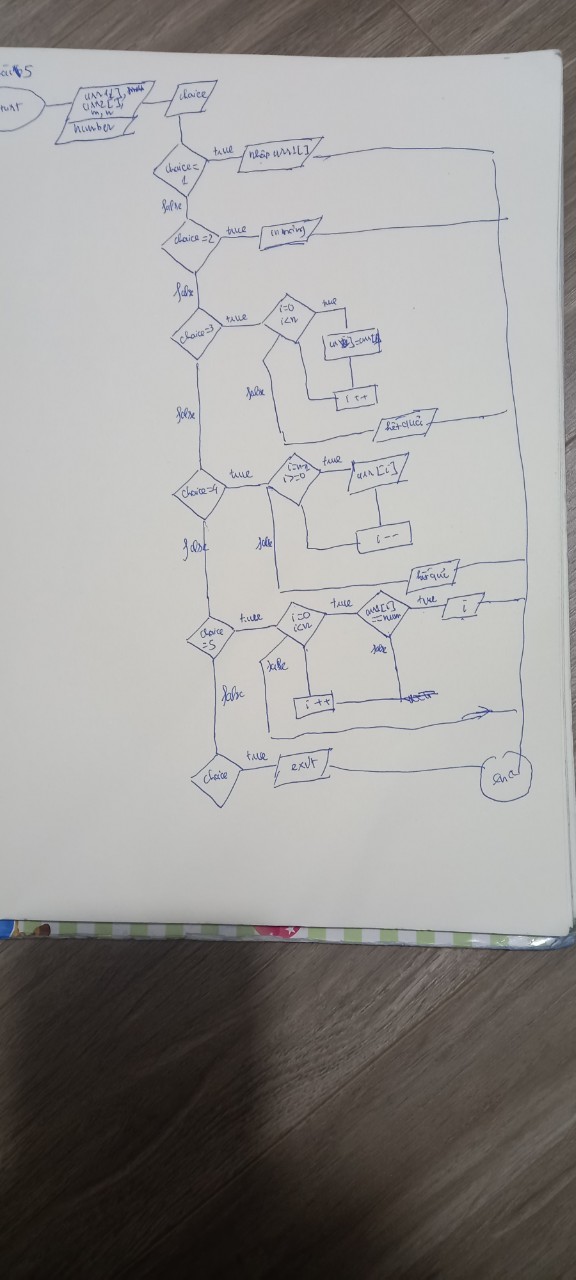 ài 5
start
arr1[],
arr2[],
m, n
number
choice
choice=
1
true
nhập arr1[]
false
choice=2
true
in mảng
false
choice=3
true
i=0
i<n
true
i++
false
kết quả
false
choice=4
true
i>=0
true
arr[i]
i--
false
kết quả
false
choice
=5
true
i=0
i<n
true
arr[i]
==num
true
i
false
false
i++
false
choice
true
exit
end